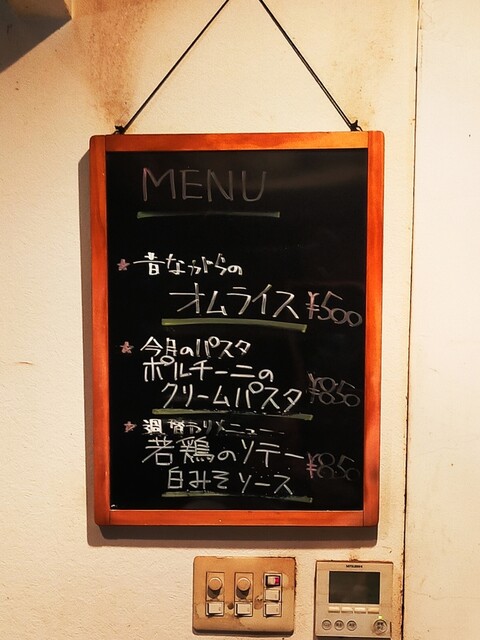 MENU
★昔ながらの
オムライス ¥500
★今月のパスタ
ポルチーニの
クリームパスタ ¥850
★週替わりメニュー
若鶏のソテー ¥850
白みそソース
MITSUBISHI